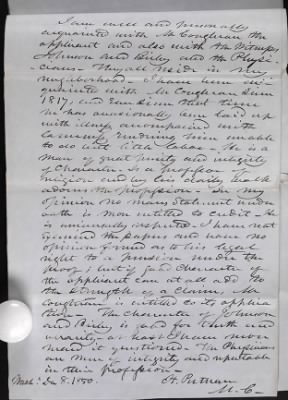 I am well and personally
acquainted with Mr Coughran the
applicant and also with the Witnesses
Johnson and Bixby and the Physi-
cians - They all reside in my
neighborhood - I have been ac-
quainted with Mr Coughran since
1817, and ever since that time
he has occasionally been laid up
with illness accompanied with
lameness, rendering him unable
to do but little labor - He is a
man of great purity and integrity
of Character - Is a professor of
religion and his daily walk
adorns the profession - In my
opinion no mans Statement under
oath is more entitled to credit - He
is universally respected - I have not
examined the papers and have no
opinion formed as to his legal
right to a pension under the
proof; but if good Character of
the applicant can at all add to
the strength of a Claim, Mr
Coughran is entitled to its applica
tion - The Character of Johnson
and Bixby, is good for truth and
veracity, at least I have never
heard it questioned - The Physicians
are men of integrity and reputable
in their profession -
Wash: Jan 8. 1850. H. Putnam
M. C.